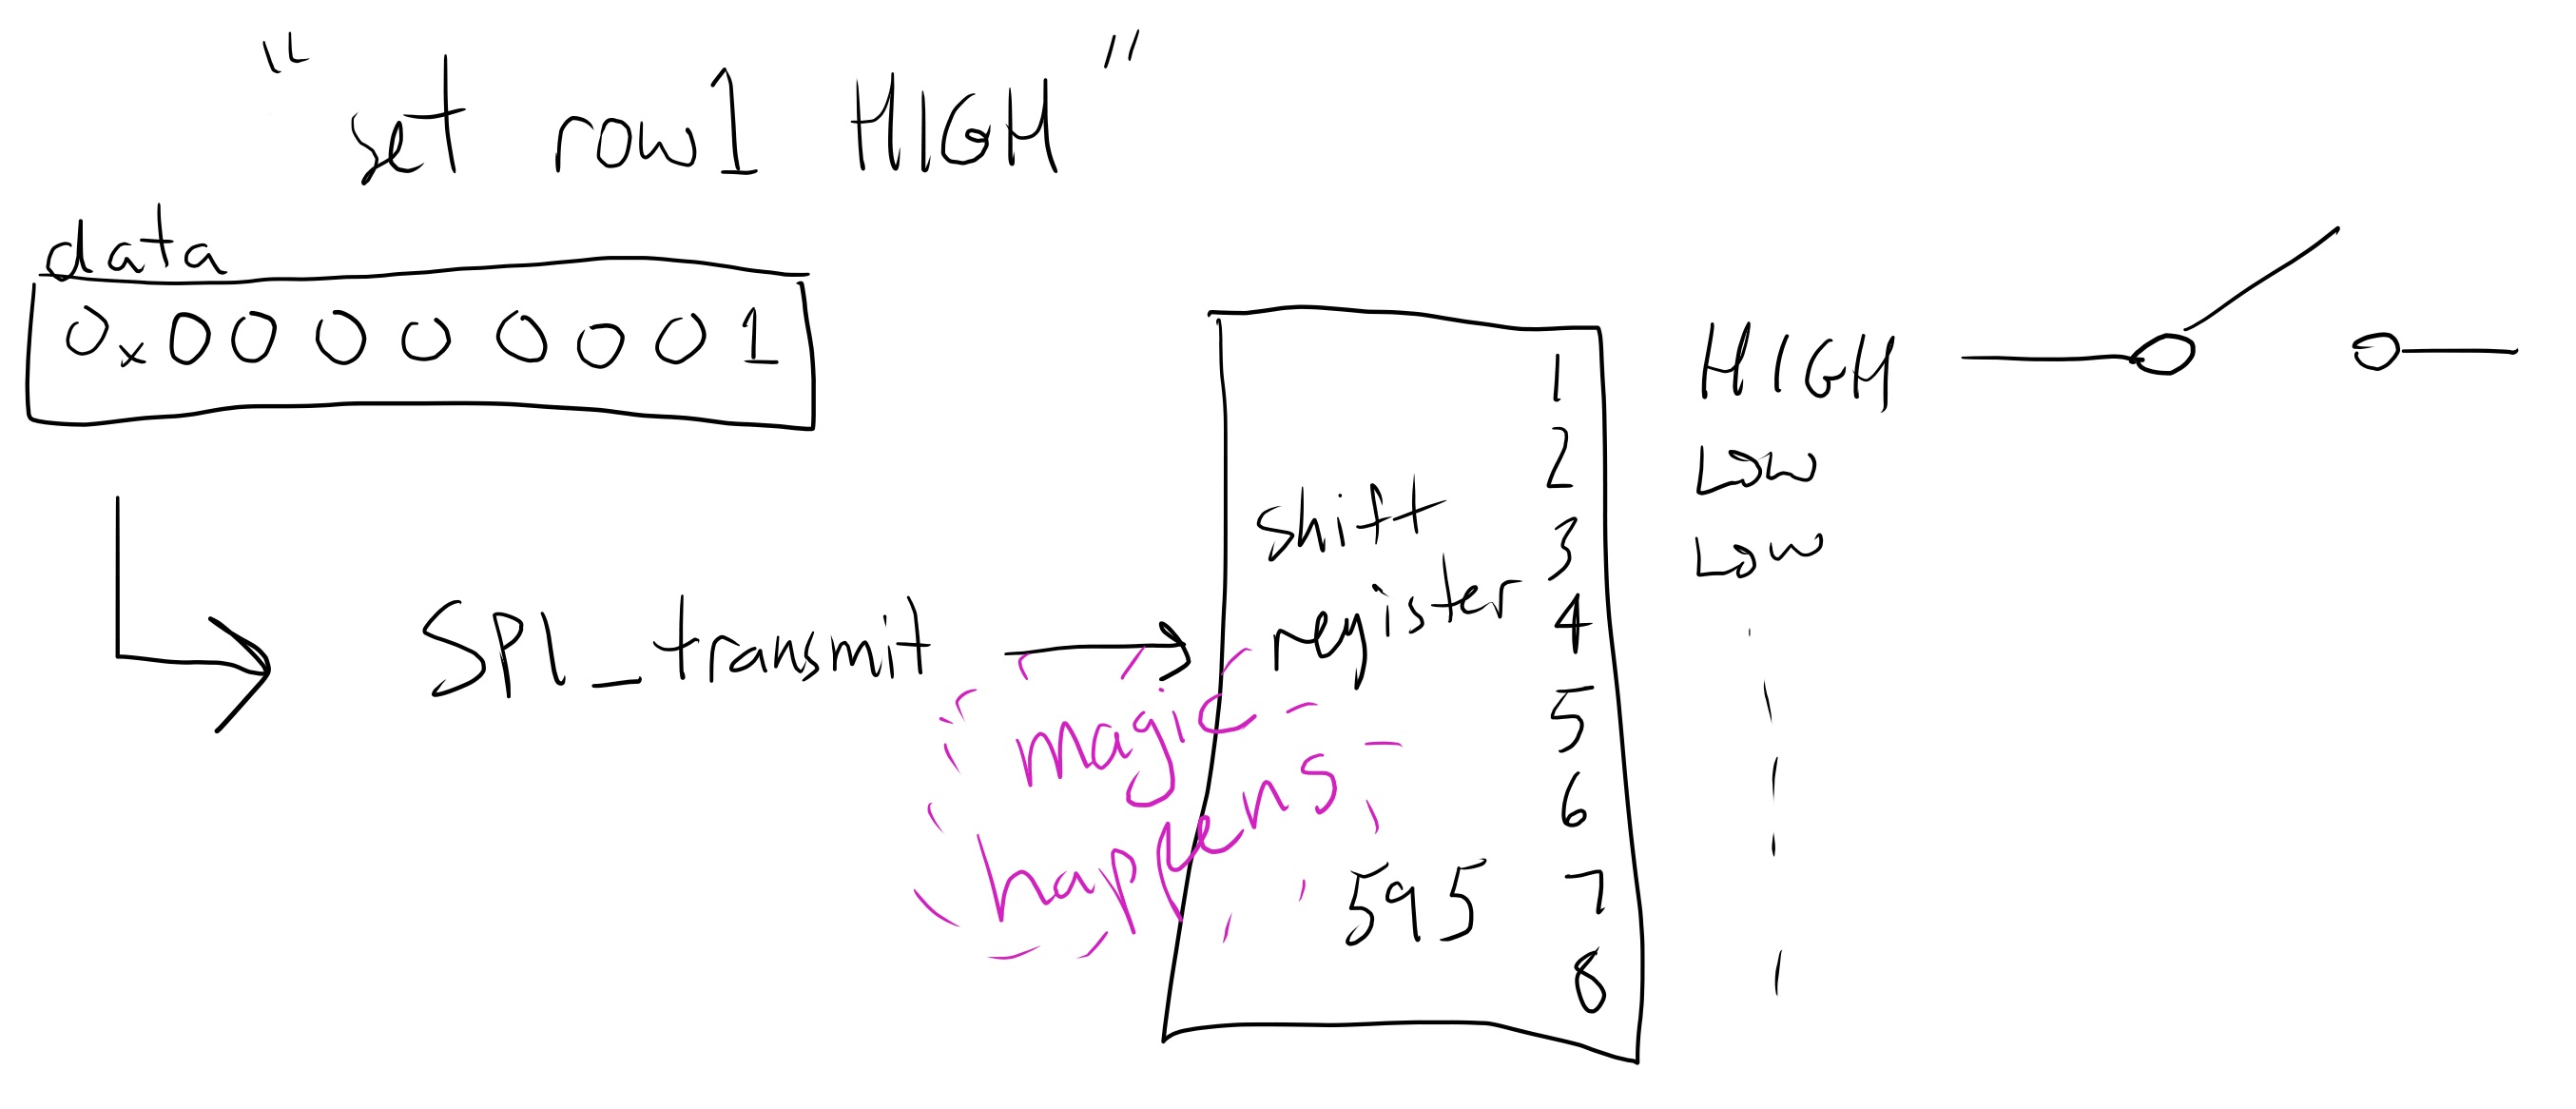 "set row1 HIGH"
data
0x00000001
SPI_transmit
magic
happens
shift
register
595
1
2
3
4
5
6
7
8
HIGH
LOW
LOW